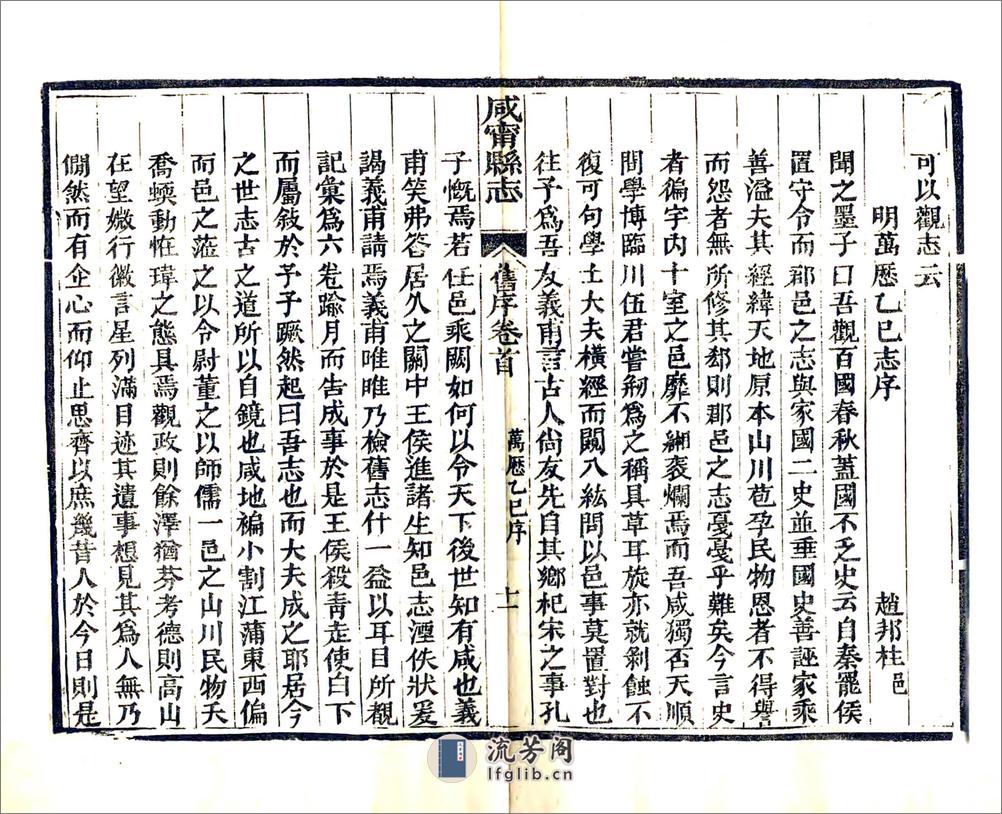 可以觀志云
明萬歷乙巳志序
趙邦柱邑
聞之墨子曰吾觀百國春秋蓋國不乏史云自秦罷侯
置守令而郡邑之志與家國二史並垂國史善誣家乘
善溢夫其經緯天地原本山川苞孕民物恩者不得譽
而怨者無所修其郄則郡邑之志戞戞乎難矣今言史
者徧宇內十室之邑靡不緗袠爛焉而吾咸獨否天順
間學博臨川伍君嘗剏為之稱具草耳旋亦就剝蝕不
復可句學士大夫橫經而闚八紘問以邑事莫置對也
往予為吾友義甫言古人尚友先自其鄉杞宋之事孔
咸甯縣志
舊序卷首
萬歷乙巳序
十一
子慨焉若任邑乘闕如何以令天下後世知有咸也義
甫笑弗荅居久之關中王侯進諸生知邑志湮佚狀爰
謁義甫請焉義甫唯唯乃檢舊志什一益以耳目所覩
記彙為六卷踰月而告成事於是王侯殺靑走使白下
而屬敍於予予蹶然起曰吾志也而大夫成之耶居今
之世志古之道所以自鏡也咸地褊小割江蒲東西偏
而邑之蒞之以令尉董之以師儒一邑之山川民物夭
喬蝡動恠瑋之態具焉觀政則餘澤猶芬考德則高山
在望媺行徽言星列滿目迹其遺事想見其為人無乃
僴然而有企心而仰止思齊以庶幾昔人於今日則是
流芳阁
lfglib.cn